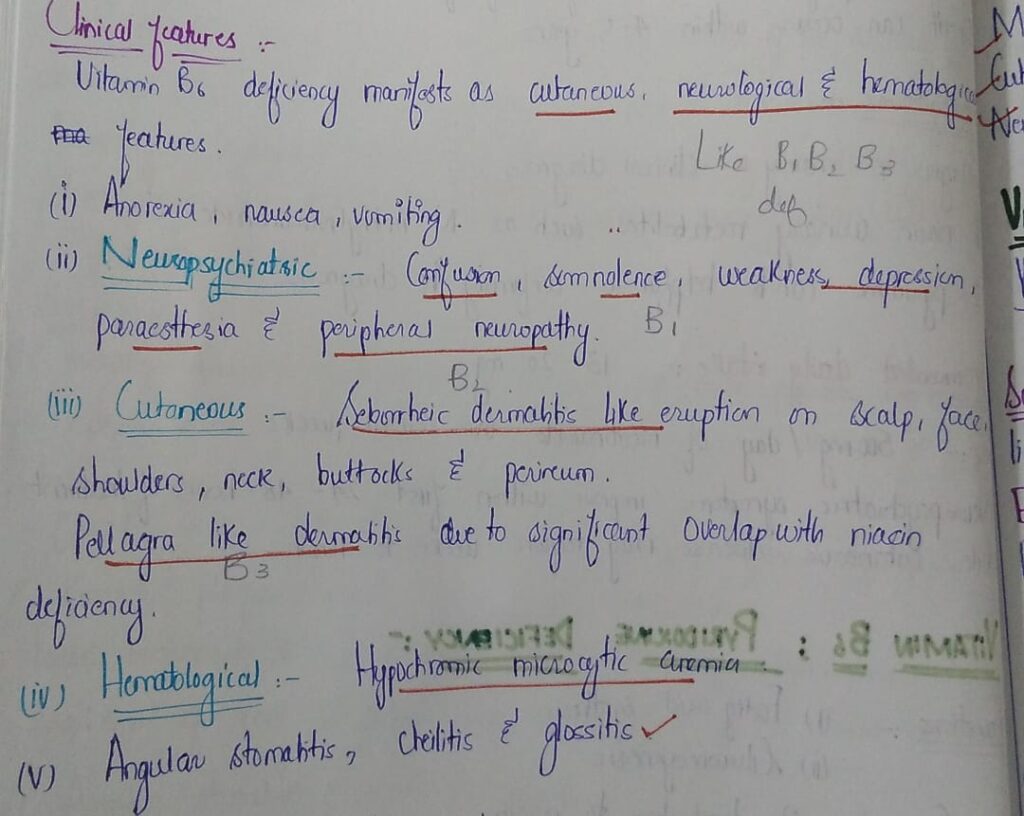 Clinical features :-
Vitamin B6 deficiency manifests as cutaneous, neurological & hematologic
features.
Like B1 B2 B3
def
(i) Anorexia, nausea, vomiting.
(ii) Neuropsychiatric :- Confusion, somnolence, weakness, depression,
paraesthesia & peripheral neuropathy. B1
B2
(iii) Cutaneous :- Seborrheic dermatitis like eruption on scalp, face,
shoulders, neck, buttocks & perineum.
Pellagra like dermatitis due to significant overlap with niacin
B3
deficiency.
VITAMIN B6 : PYRIDOXINE DEFICIENCY :-
(iv) Hematological :- Hypochromic microcytic anemia.
(v) Angular stomatitis, cheilitis & glossitis